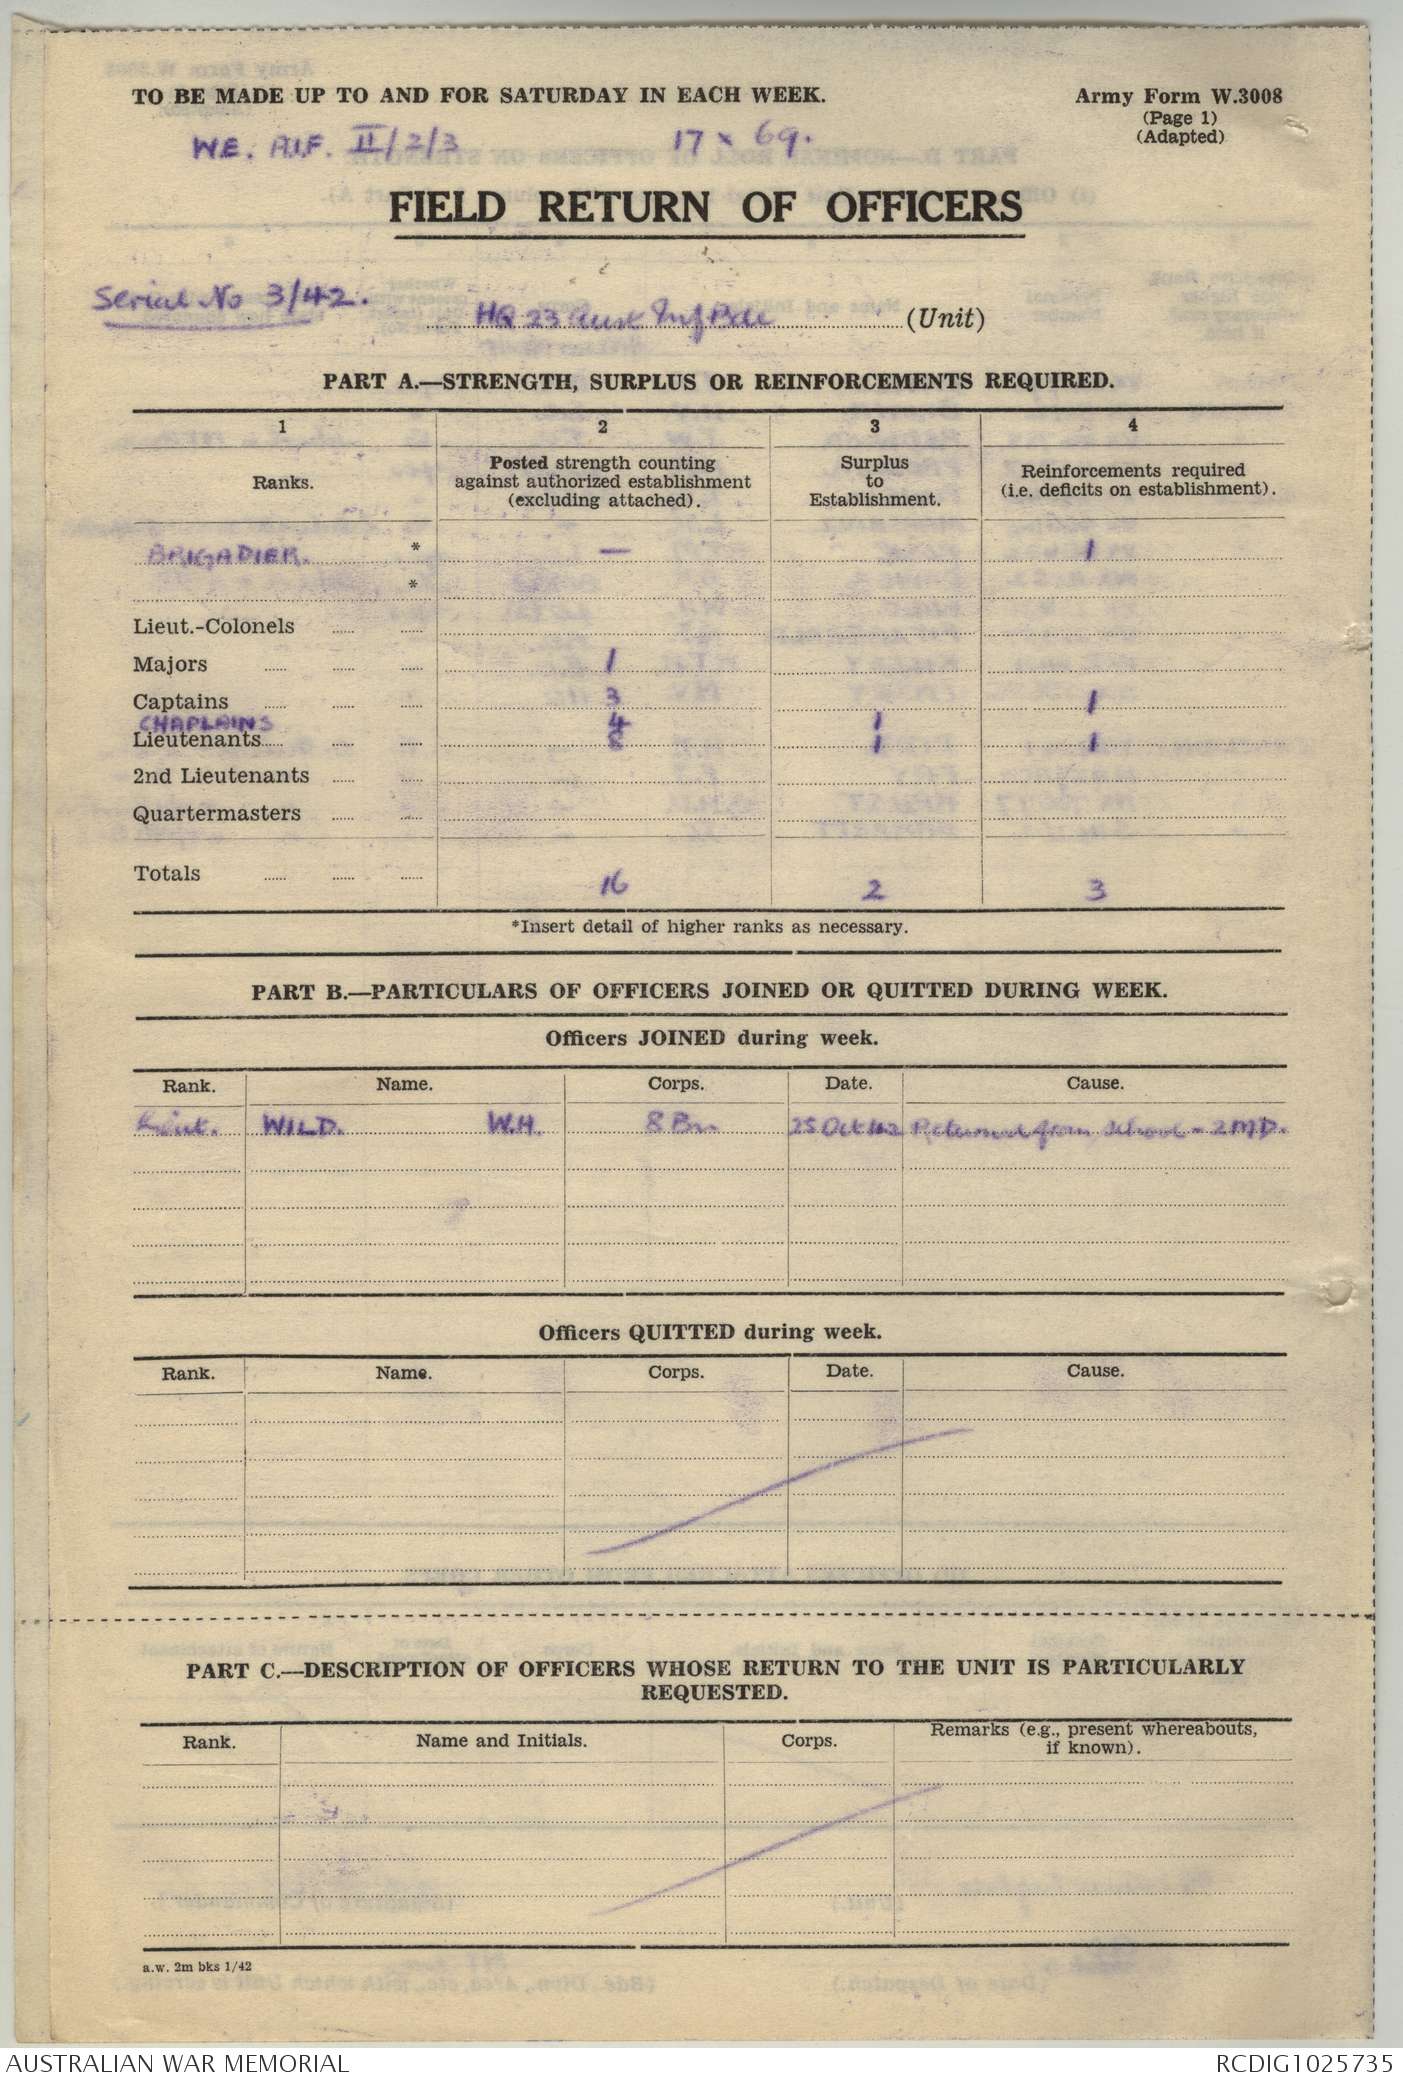 TO BE MADE UP TO AND FOR SATURDAY IN EACH WEEK.
Army Form W.3008
(Page 1)
(Adapted)
W.E. A.I.F. II/2/3 17 x 69.
FIELD RETURN OF OFFICERS
Serial No 3/42.
HQ 23 Aust Inf Bde (Unit)
PART A.—STRENGTH, SURPLUS OR REINFORCEMENTS REQUIRED.
1 2 3 4
Ranks.
Posted strength counting against authorized establishment (excluding attached).
Surplus to Establishment.
Reinforcements required (i.e. deficits on establishment).
BRIGADIER. * — 1
*
Lieut.-Colonels
Majors 1
Captains 3 1
CHAPLAINS 4 1
Lieutenants 8 1 1
2nd Lieutenants
Quartermasters
Totals 16 2 3
*Insert detail of higher ranks as necessary.
PART B.—PARTICULARS OF OFFICERS JOINED OR QUITTED DURING WEEK.
Officers JOINED during week.
Rank. Name. Corps. Date. Cause.
Lieut. WILD. W.H. 8 Bn 25 Oct 42 Returned from School - 2 M.D.
Officers QUITTED during week.
Rank. Name. Corps. Date. Cause.
PART C.—DESCRIPTION OF OFFICERS WHOSE RETURN TO THE UNIT IS PARTICULARLY
REQUESTED.
Rank. Name and Initials. Corps. Remarks (e.g., present whereabouts, if known).
a.w. 2m bks 1/42
AUSTRALIAN WAR MEMORIAL RCDIG1025735